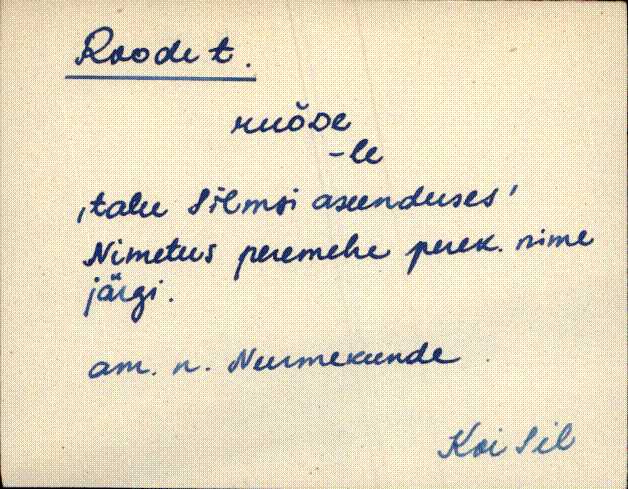 Roode t.
ruŏDe
-le
‚talu Silmsi asunduses'
Nimetus peremehe perek. nime
järgi.
am. n. Nurmekunde
Koi Sil